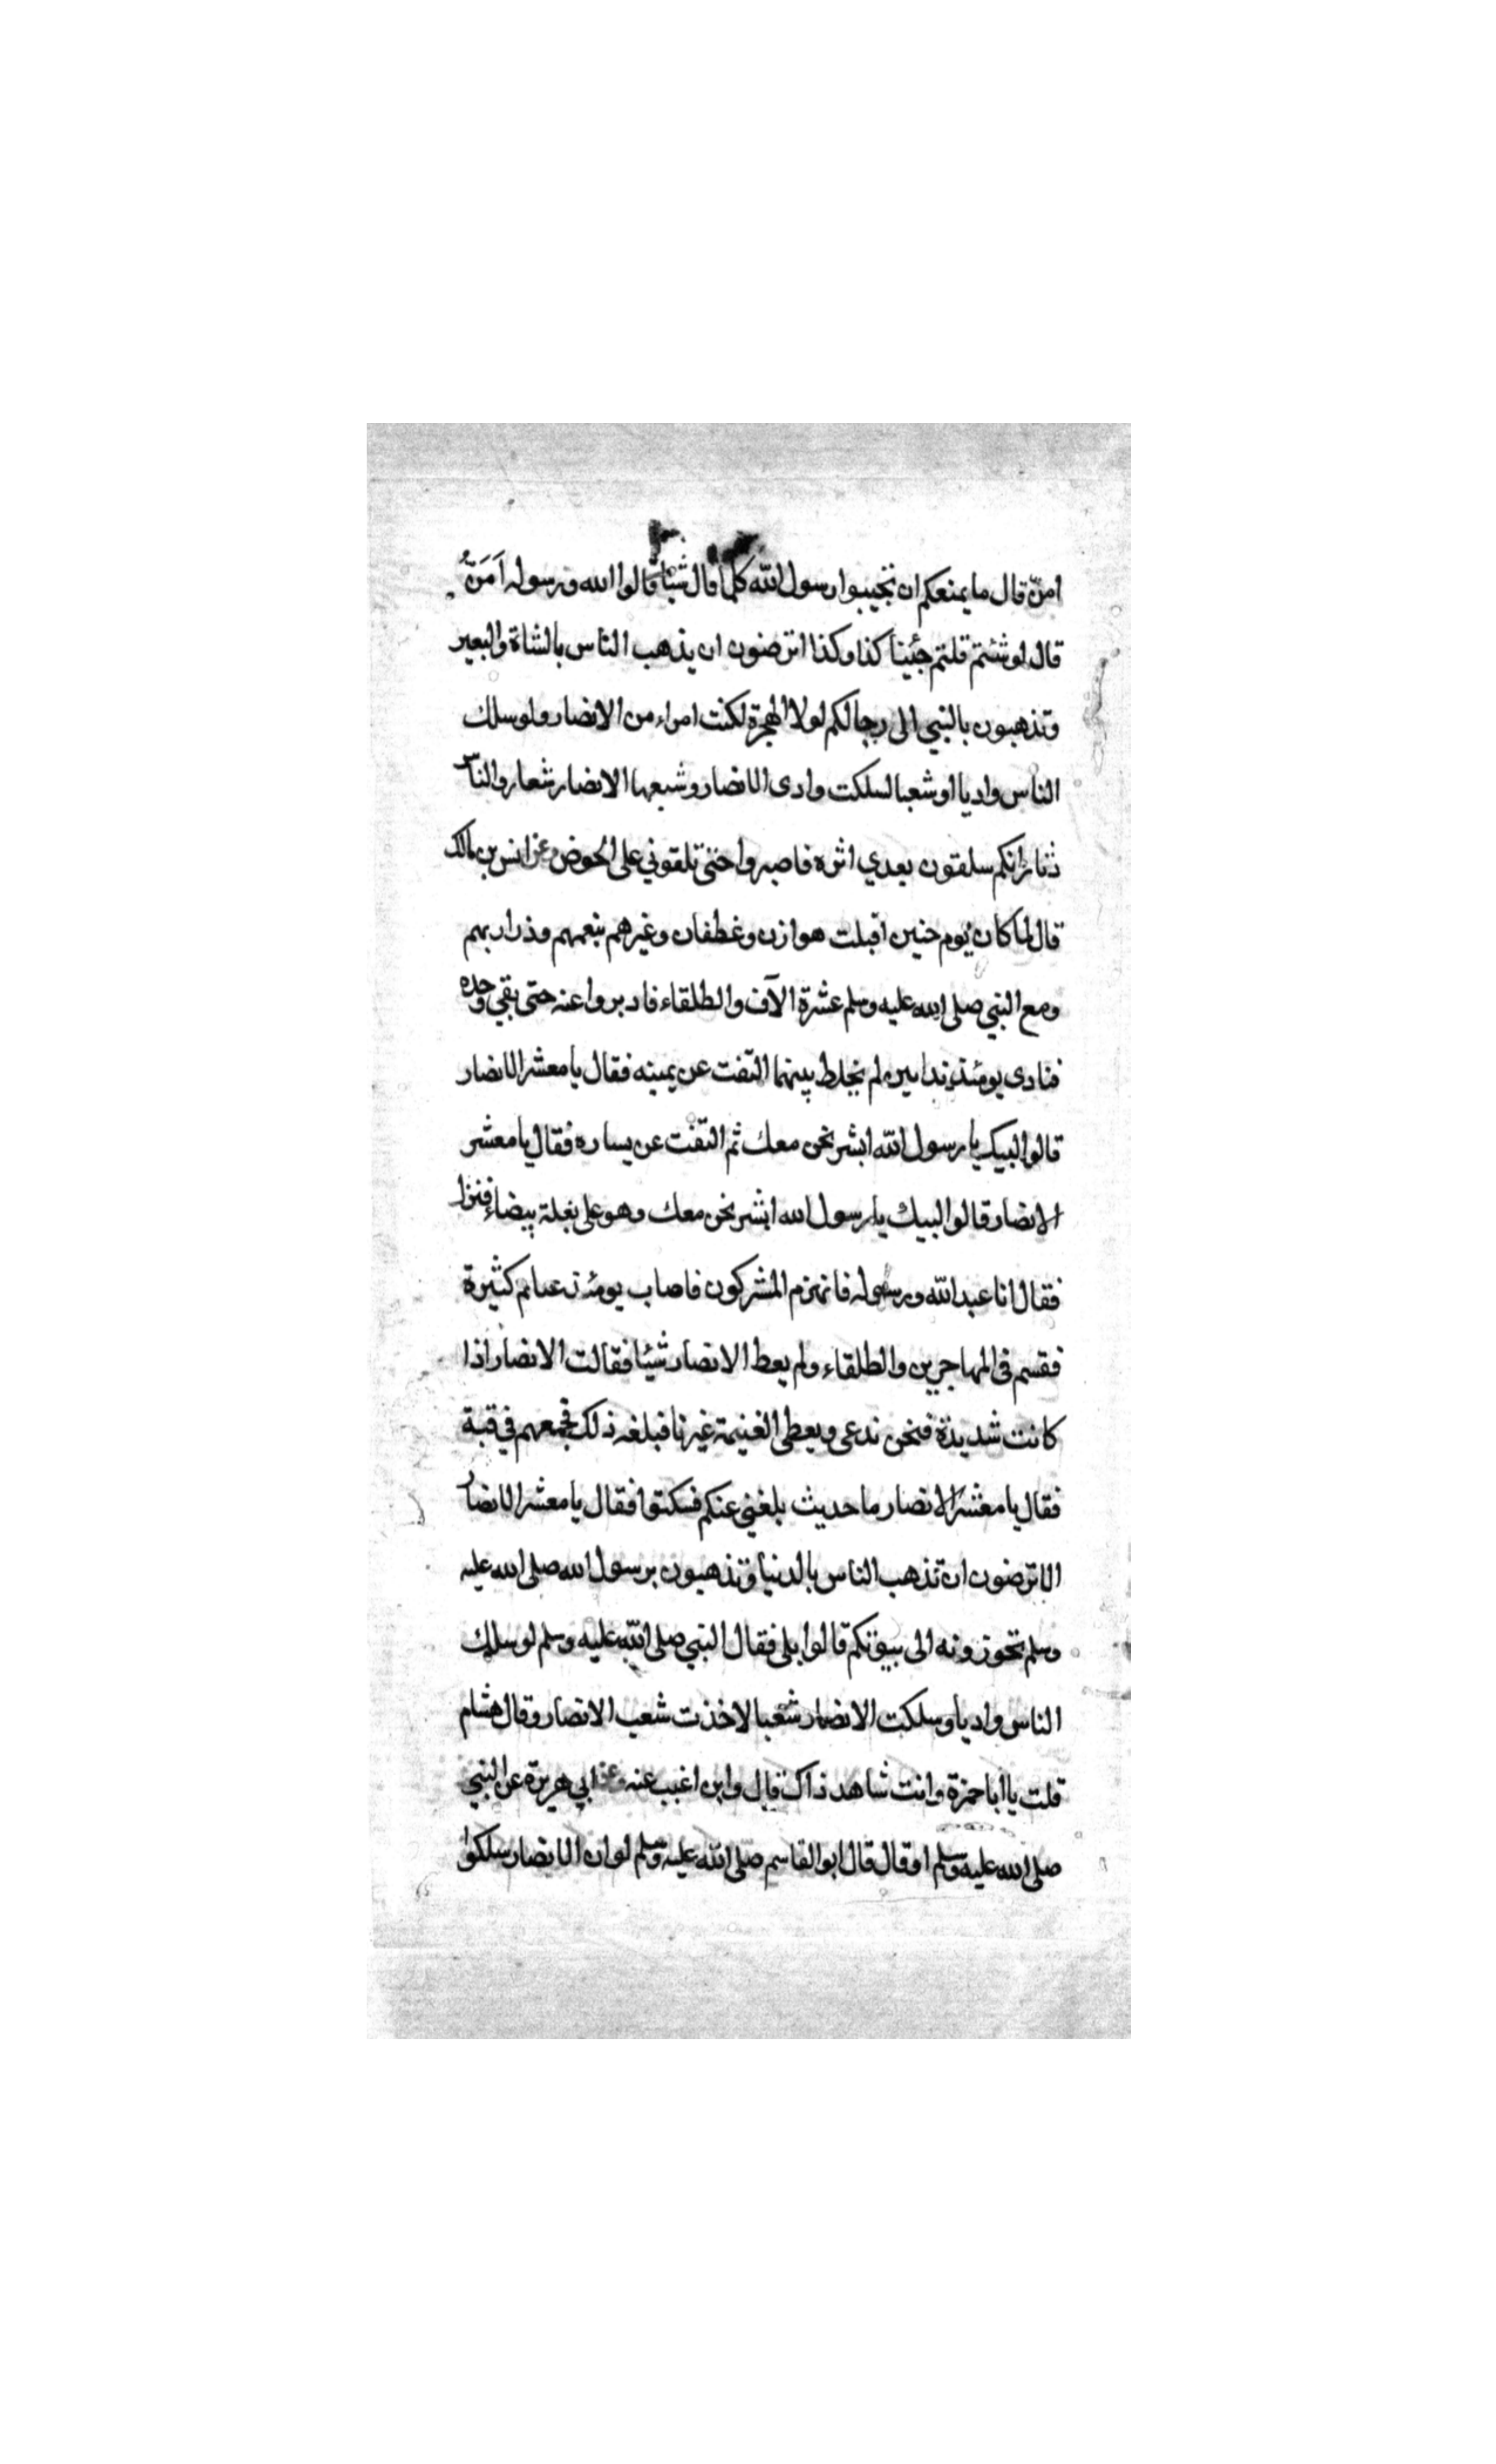 امنّ قال ما يمنعكم ان تجيبوا رسول الله كلما قال شيئا قالوا الله ورسوله اَمَنُّ
قال لو شئتم قلتم جئينا كذا وكذا اترضون ان يذهب الناس بالشاة والبعير
وتذهبون بالنبي الى رجالكم لولا الهجرة لكنت امراء من الانصار ولو سلك
الناس واديا او شعبا لسلكت وادى الانصار وشبعها الانصار شعار والناس
ذثار انكم سلقون بعدي اثره فاصبروا حتى تلقوني على الحوض وعن انس بن مالك
قال لما كان يوم حنين اقبلت هوازن وغطفان وغيرهم بنعمهم وذراريهم
ومع النبي صلى الله عليه وسلم عشرة الآف والطلقاء فادبروا عنه حتى بقي وحده
فنادى يومئذ ندايين لم يخلط بينهما التفت عن يمينه فقال يا معشر الانصار
قالوا لبيك يا رسول الله ابشر نحن معك ثم التفت عن يساره فقال يا معشر
الانصار قالوا لبيك يا رسول الله ابشر نحن معك وهو على بغلة بيضاء فنزل
فقال انا عبد الله ورسوله فانهزم المشركون فاصاب يومئذ غنائم كثيرة
فقسم فى المهاجرين والطلقاء ولم يعط الانصار شيئا فقالت الانصار اذا
كانت شديدة فنحن ندعى ويعطى الغنيمة غيرنا فبلغه ذلك فجمعهم في قبة
فقال يا معشر الانصار ما حديث بلغني عنكم فسكتوا فقال يا معشر الانصار
الا ترضون ان تذهب الناس بالدنيا وتذهبون برسول الله صلى الله عليه
وسلم تحوزونه الى بيوتكم قالوا بلى فقال النبي صلى الله عليه وسلم لو سلك
الناس واديا وسلكت الانصار شعبا لاخذت شعب الانصار وقال هشام
قلت يا ابا حمزة وانت شاهد ذاك قال واين اغيب عنه وعن ابي هريرة عن النبي
صلى الله عليه وسلم او قال قال ابو القاسم صلى الله عليه وسلم لو ان الانصار سلكوا